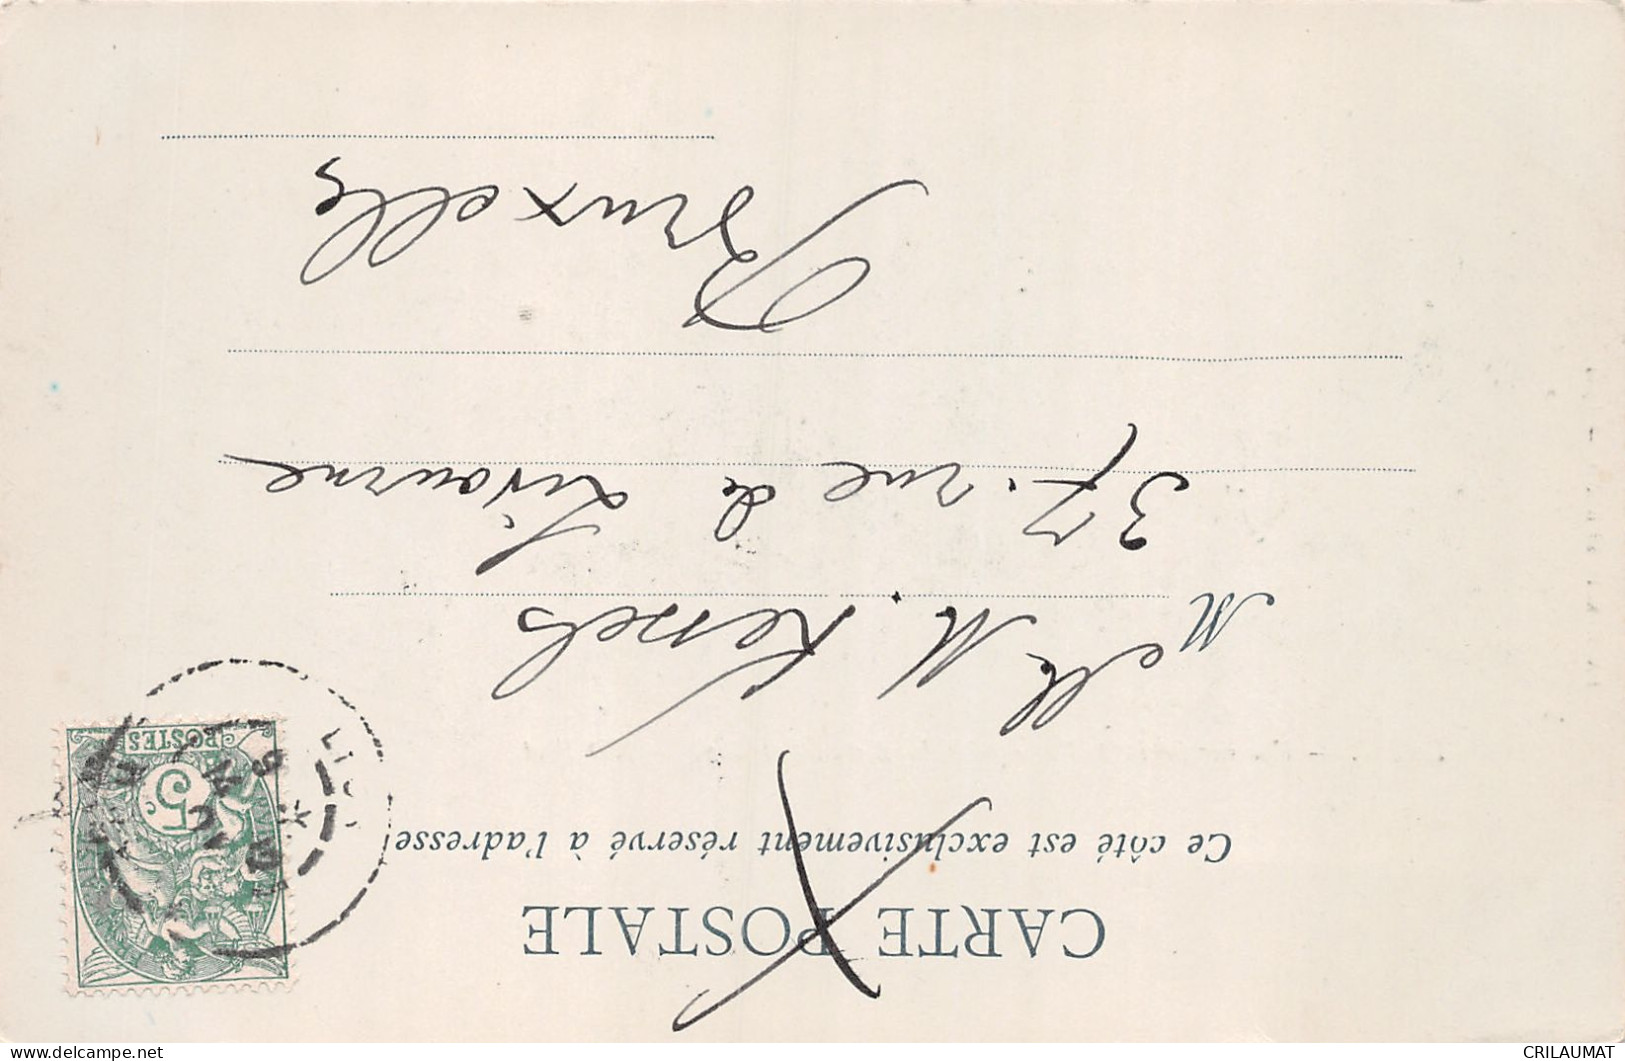 CARTE POSTALE
Ce côté est exclusivement réservé à l'adresse
Melle M. Kessels
37. rue de Livourne
Bruxelles
5c
POSTES
CRILAUMAT